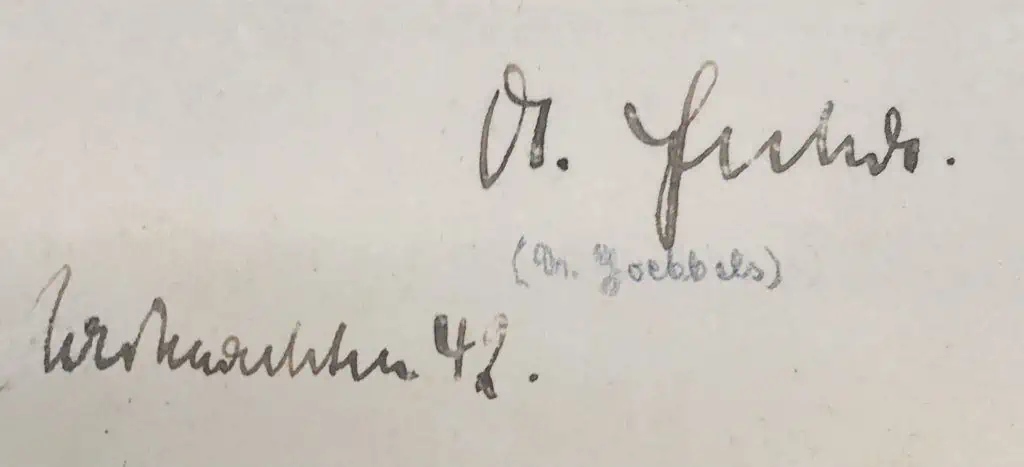 Dr.
(Dr. Goebbels)
Weihnachten 42.